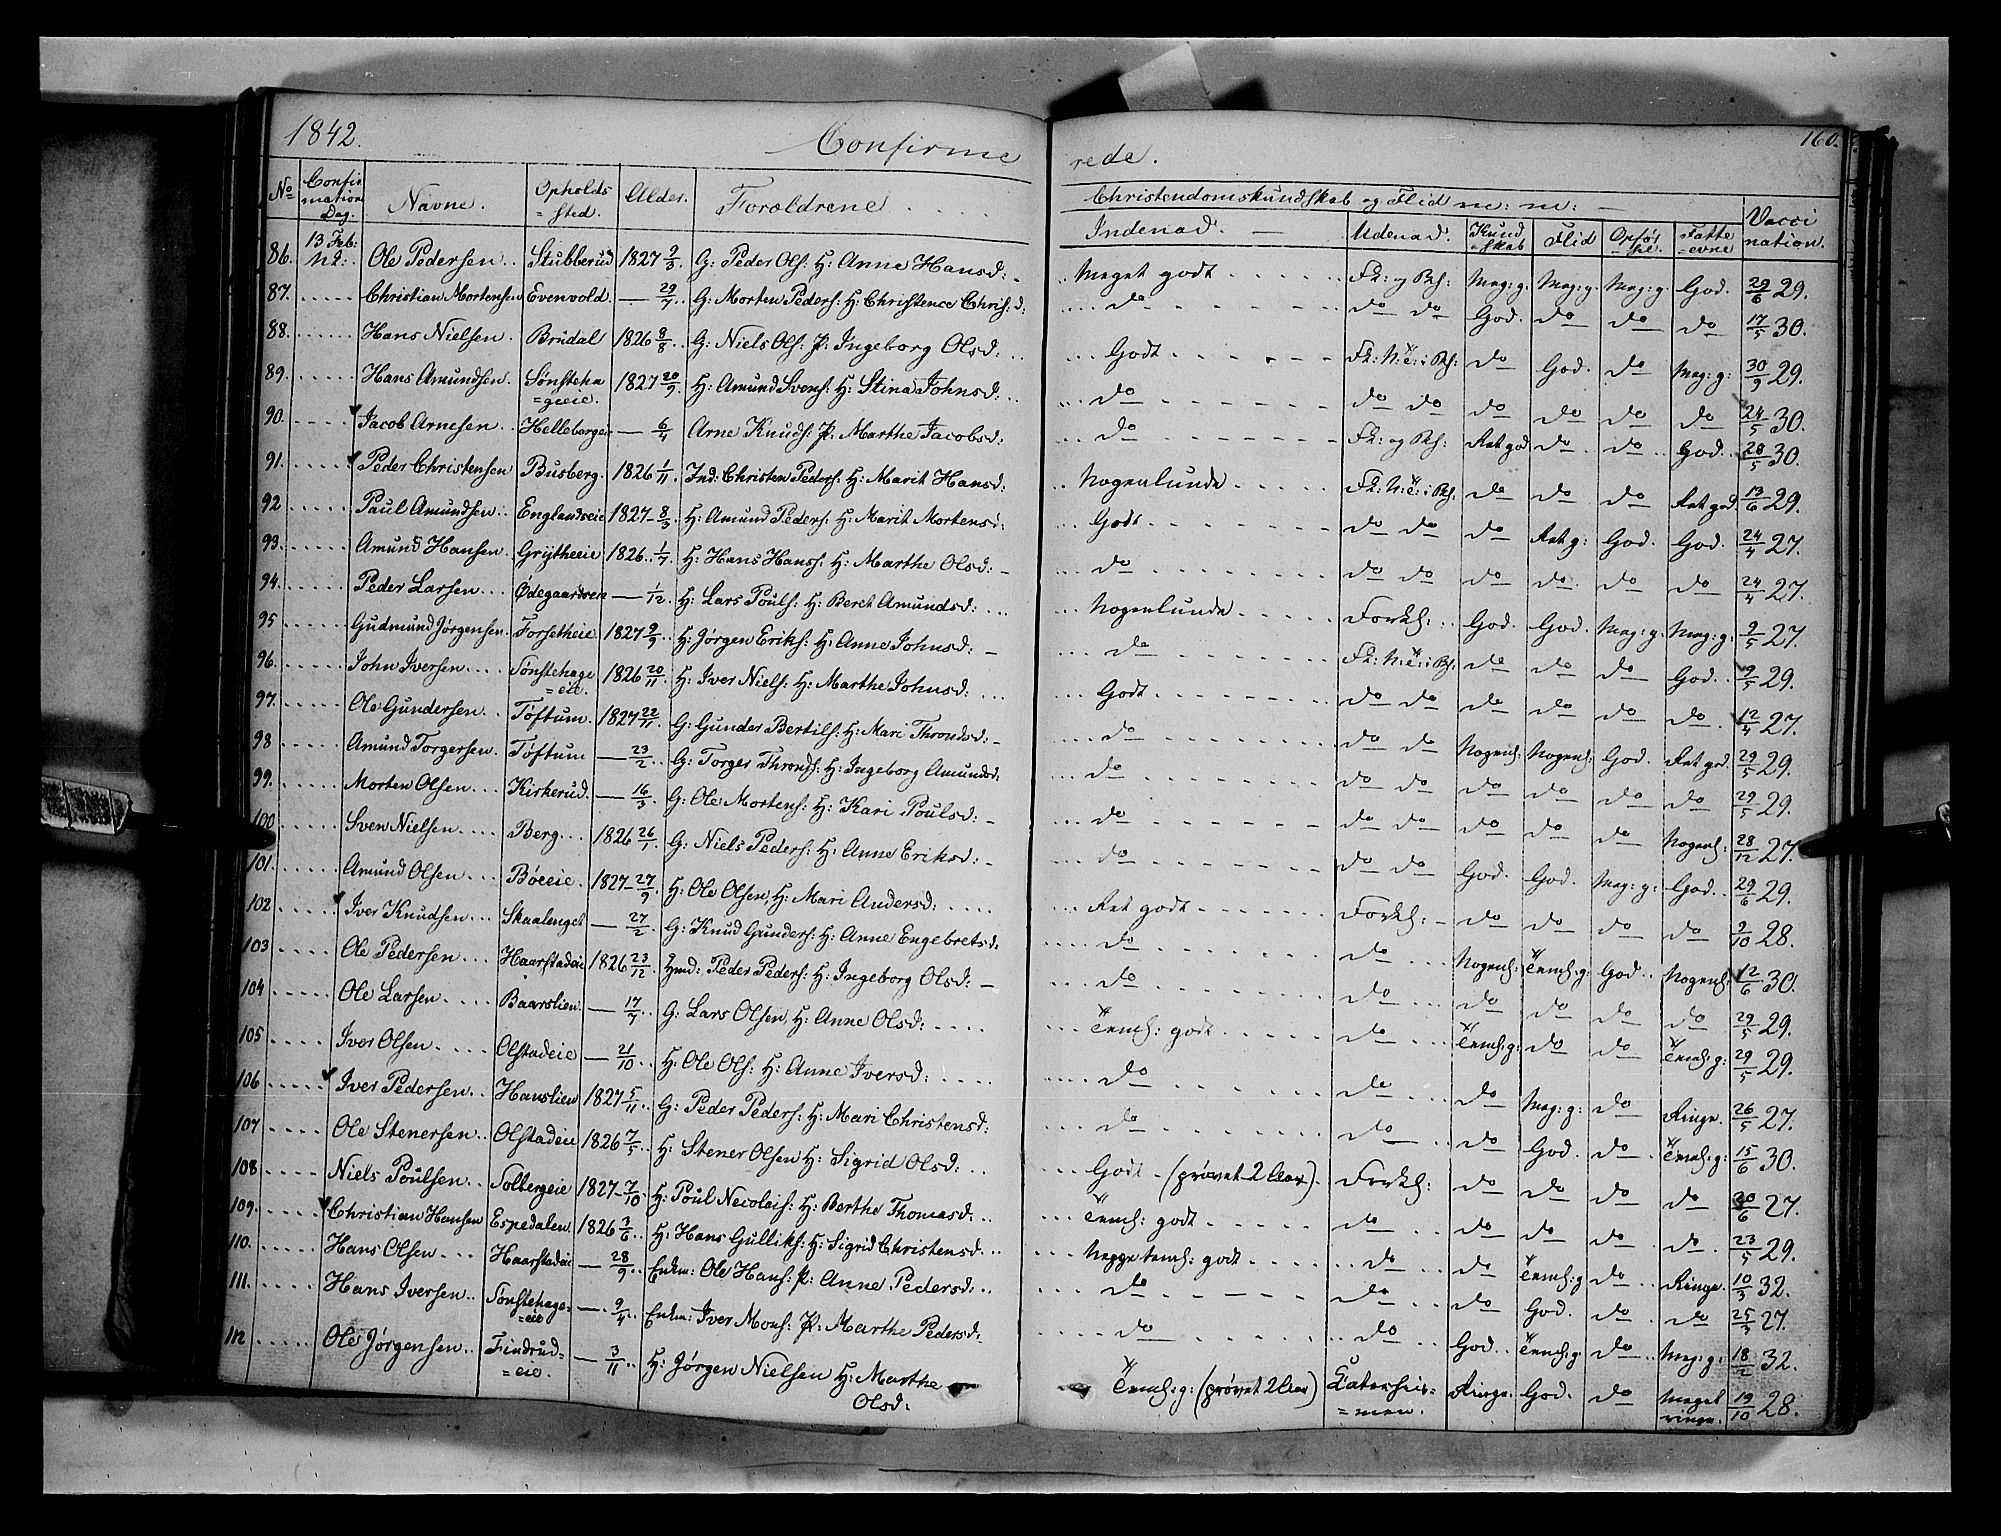 1842. Confirme rede. 160.
No Confirmations Dag. Navne. Opholds=sted. Alder. Forældrene Christendomskundskab og Flid m: m: Vacci nation.
Indenad. Udenad. Kund=skab Flid Opfør=sel. Fatte=evne
86. 13 Feb: Ole Pedersen.. Stubberud 1827 9/3. G: Peder Ols: H: Anne Hansd: Meget godt Fk: og Meg: g. Meg: g. Meg: g. God. 29/6 29.
87. Christian Mortensen Evenvold. — 29/7. G: Morten Peders: H: Christence Chris: d: do do do God. do do do 17/5 30.
88. Hans Nielsen. Brudal 1826 8/8. G: Niels Ols: P: Ingeborg Olsd: Godt do God. do Meg: g: 30/9 29.
89. Hans Amundsen. Sønsteha=geeie. 1827 20/9. H: Amund Svens: H: Stina Johnsd: do do do do do do do 24/5 30.
90. Jacob Arnesen.. Helleborgeie — 6/4 Arne Knuds: P: Marthe Jacobsd: do Ret god do do God. 28/5 30.
91. Peder Christensen Busberg. 1826 1/11. Ind: Christen Peders: H: Marit Hansd: Nogenlunde do do do Ret god. 13/6 29.
92 Paul Amundsen.. Englandseie 1827 8/3. H: Amund Peders: H: Marit Mortensd: Godt do do do Ret g: God. God. 24/4 27.
93. Amund Hansen. Grytheeie 1826.. 1/7. H: Hans Hans: H: Marthe Olsd: do do do do do do do 24/4 27.
94. Peder Larsen... Ødegaardseie — 1/12. H: Lars Pouls: H: Beret Amundsd: Nogenlunde Forkl: God. God. Meg: g. Meg: g. 9/5 27.
95 Gudmund Jørgensen Forsetheie 1827 9/9.. H: Jørgen Eriks: H: Anne Johnsd: do do do do God. 9/5 29.
96. John Iversen.... Sønstehage=eie. 1826 20/11. H: Iver Niels: H: Marthe Johnsd: Godt do do do do do do. 12/4 27.
97. Ole Gundersen.. Toftum. 1827 22/11. G: Gunder Bertils: H: Mari Throndsd: do do do Nogenl: Nogenl: God. Ret god. 29/5 29.
98 Amund Torgersen. Toftum — 23/2.. G: Torger Thronds: H: Ingeborg Amundsd: do do do do do do do 29/5 29.
99. Morten Olsen... Kirkerud. — 16/3. G: Ole Mortens: H: Kari Poulsd: do do do do do do Nogenl: 28/12 27.
100 Sven Nielsen.... Berg... 1826 26/1. G: Niels Peders: H: Anne Eriksd: do do do God. God. Meg: g: God.. 29/6 29.
101. Amund Olsen.... Bøeeie. 1827 27/9. H: Ole Olsen, H: Mari Andersd: Ret godt Forkl: do do do do 9/10 28.
102 Iver Knudsen... Skaalenget — 27/2. G: Knud Gunders: H: Anne Engebretsd: do do Nogenl: Teml: g: God.. Nogenl: 12/6 30.
103. Ole Pedersen.... Haarstadeie 1826 23/12. Hmd: Peder Peders: H: Ingeborg Olsd: do do do do do do 29/5 29.
104 Ole Larsen.... Baarslien. — 17/7. G: Lars Olsen, H: Anne Olsd: Teml: godt do Teml: g: do do Teml: g: 29/5 29.
105 Iver Olsen.... Olstadeie — 21/10.. H: Ole Ols: H: Anne Iversd: do do do Meg: g: do Ringe. 26/5 27.
106 Iver Pedersen.. Hauslien 1827 5/11.. G: Peder Peders: H: Mari Christensd: do do do God. do Teml: g: 15/6 30.
107 Ole Stenersen.. Olstadeie 1826 7/5. H: Stener Olsen H: Sigrid Olsd: Godt (prøvet 2 Aar). Forkl: do do do do 20/6 27.
108. Niels Poulsen.. Solbergeie 1827 7/10. H: Poul Necolais: H: Berthe Thomasd: Teml: godt do do do do do. 23/5 29.
109. Christian Hansen Espedalen 1826 3/6. H: Hans Gulliks: H: Sigrid Christensd: Neppe teml: godt do do Teml: g do Ringe. 10/3 32.
110. Hans Olsen... Haarstadeie — 28/9.. Enkm: Ole Hans: P: Anne Pedersd: do do do God. do do 25/3 27.
111. Hans Iversen.. Sønstehage=eie — 9/4. Enkm: Iver Mons: P: Marthe Pedersd: do do God.. Teml: g: do Meg: g: 18/2 32.
112 Ole Jørgensen.. Findrud=eie. — 3/11.. H: Jørgen Nielsen H: Marthe Olsd: Teml: g: (prøvet 2 Aar) Ringe. God. do Meget ringe. 19/10 28.